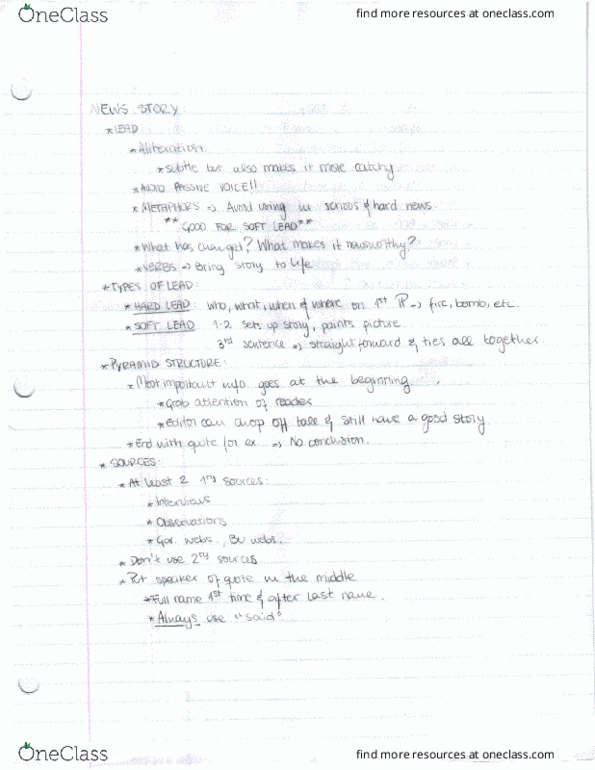 OneClass
find more resources at oneclass.com
NEWS STORY:
* LEAD
* Aliteration
* subtle but also makes it more catchy
* AVOID PASSIVE VOICE!!
* METAPHORS => Avoid using in serious & hard news.
** GOOD FOR SOFT LEAD **
* What has changed? What makes it newsworthy?
* VERBS => Bring story to life
* TYPES OF LEAD:
* HARD LEAD: who, what, when & where on 1st P => fire, bomb, etc.
* SOFT LEAD 1-2 sets up story, paints picture.
3rd sentence => straight forward & ties all together.
* PYRAMID STRUCTURE:
* Most important info. goes at the beginning.
* Grab attention of reader
* Editor can chop off & still have a good story.
* End with quote for ex => No conclusion.
* SOURCES:
* At least 2 1ry sources:
* Interviews
* Observations
* Gov. webs, BU webs.
* Don't use 2ry sources
* Put speaker of quote in the middle
* Full name 1st time & after last name.
* Always use "said"
OneClass
find more resources at oneclass.com